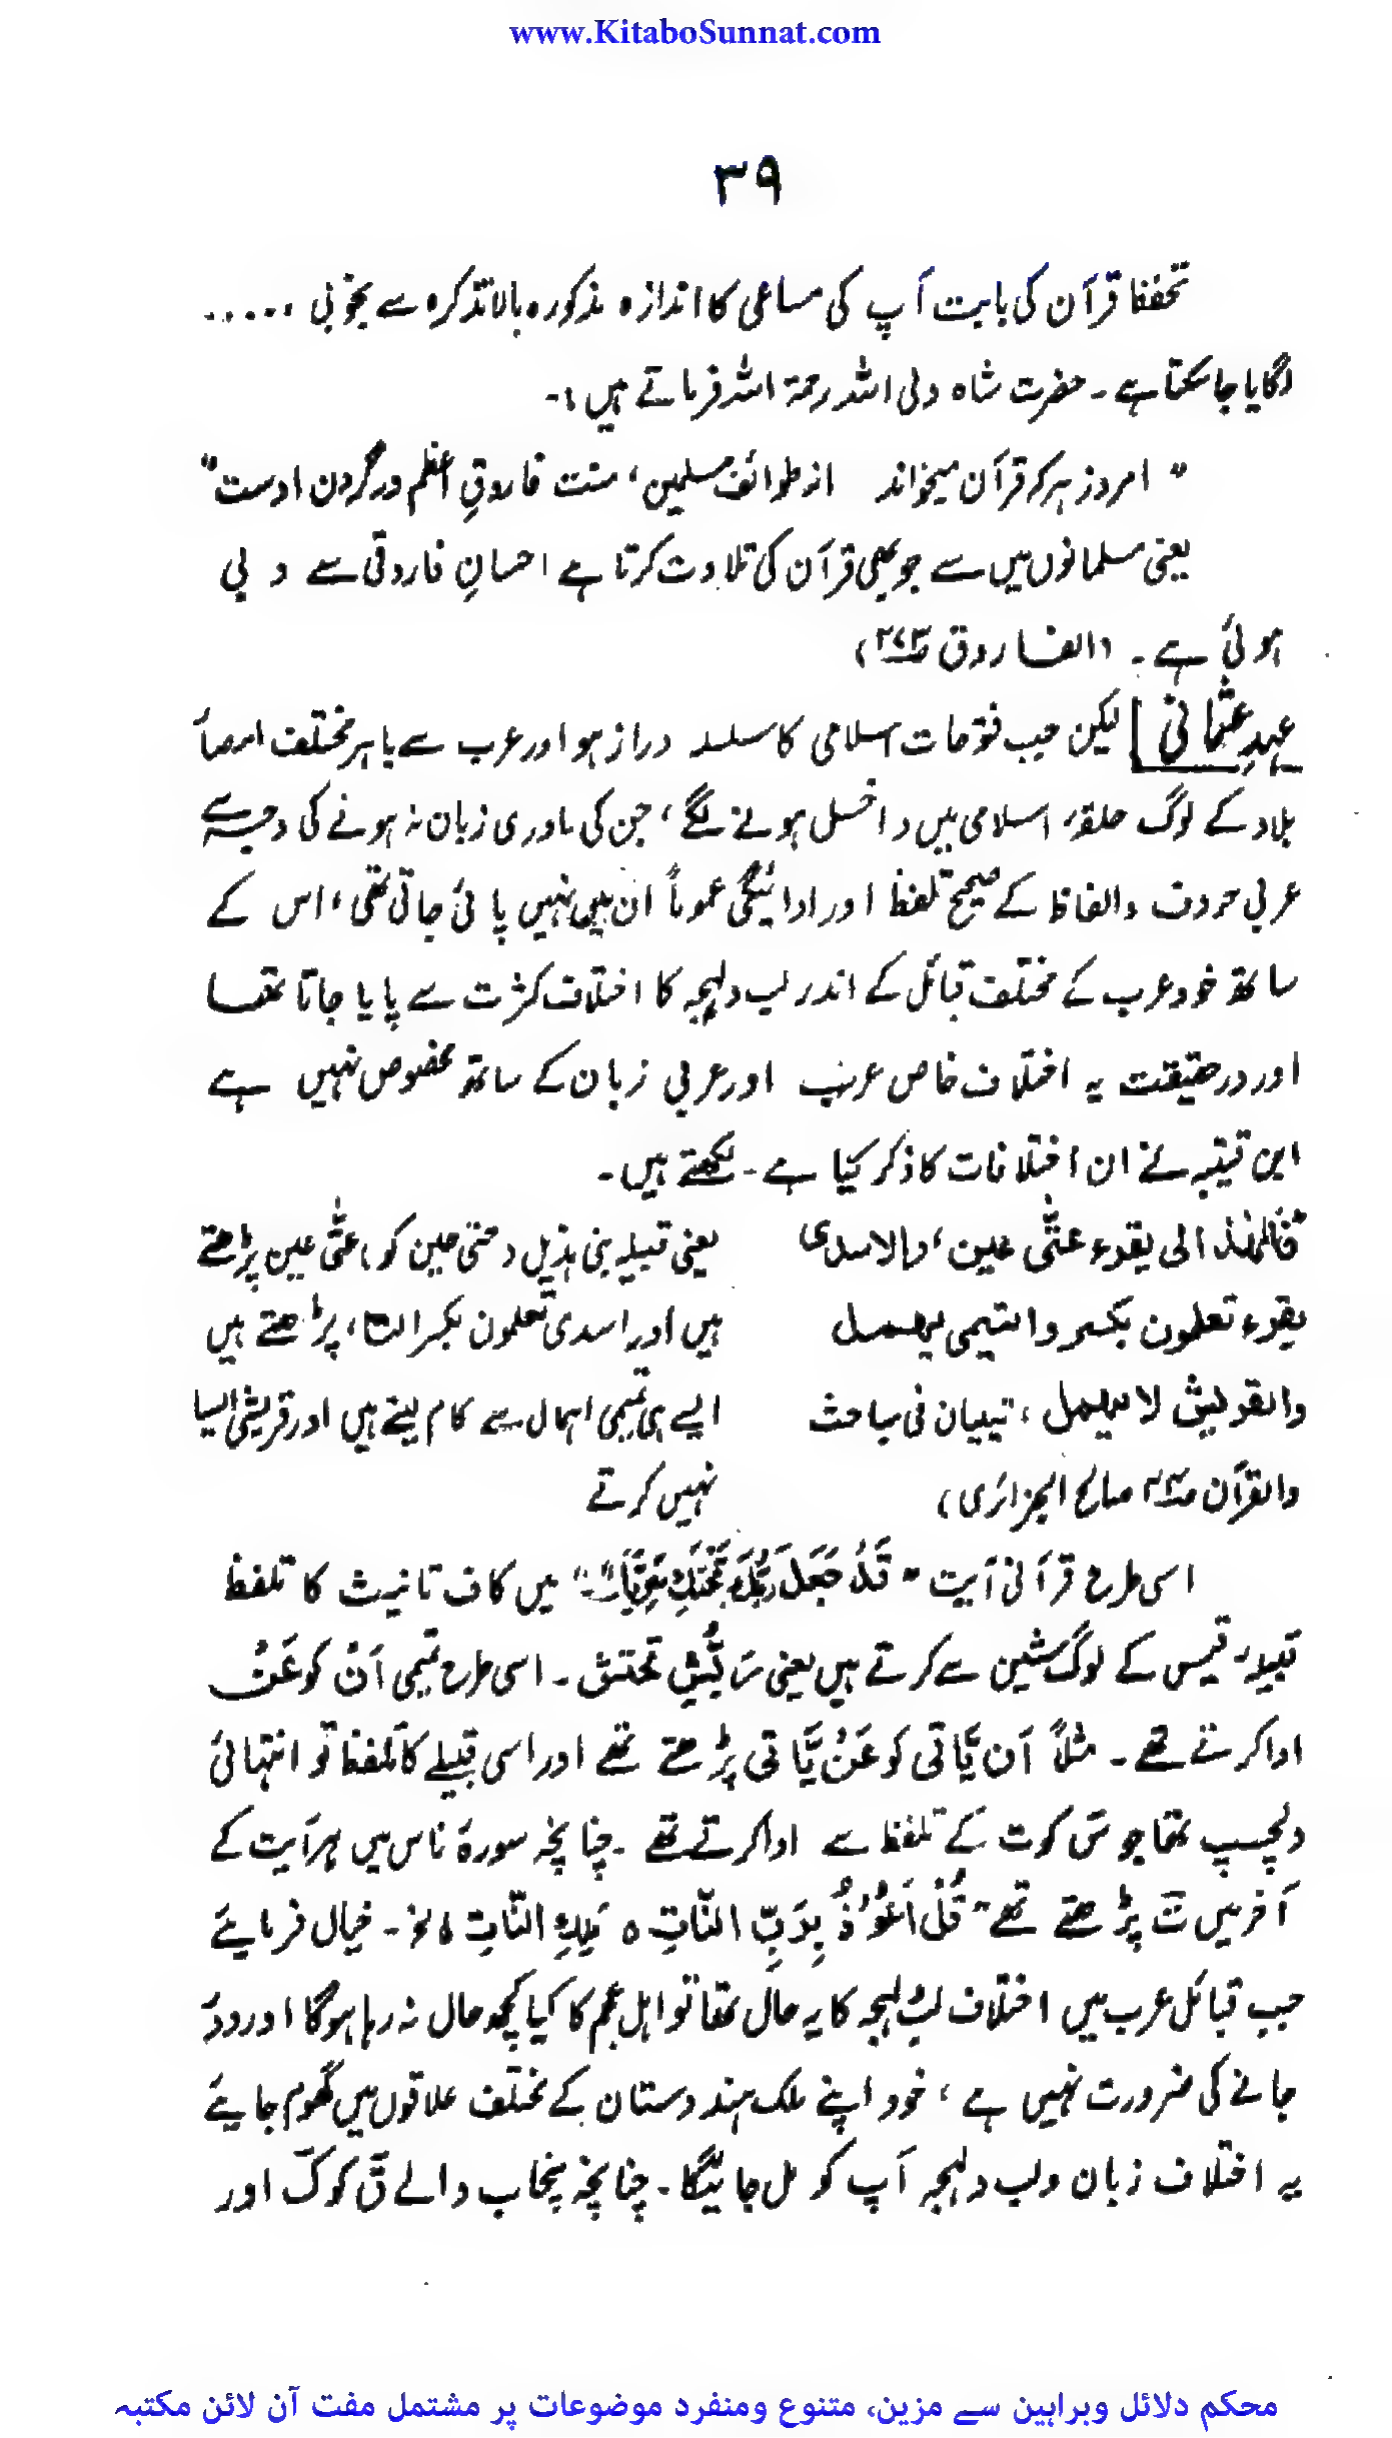 www.KitaboSunnat.com
۳۹
تحفظ قرآن کی بابت آپ کی مساعی کا اندازہ مذکورہ بالا تذکرہ سے بخوبی .....
لگایا جا سکتا ہے۔ حضرت شاہ ولی اللہ رحمۃ اللہ فرماتے ہیں :-
" امروز ہر کہ قرآن میخواند از طوائف مسلمین، منت فاروقِ اعظم در گردن اوست"
یعنی مسلمانوں میں سے جو بھی قرآن کی تلاوت کرتا ہے احسانِ فاروقی سے دبی
ہوئی ہے۔ (الفاروق )
عہدِ عثمانی] لیکن جب فتوحات اسلامی کا سلسلہ دراز ہوا اور عرب سے باہر مختلف امصاً
بلاد کے لوگ حلقۂ اسلامی میں داخل ہونے لگے، جن کی مادری زبان نہ ہونے کی وجہ سے
عربی حروف والفاظ کے صحیح تلفظ اور ادائیگی عموماً ان میں نہیں پائی جاتی تھی، اس کے
ساتھ خود عرب کے مختلف قبائل کے اندر لب ولہجہ کا اختلاف کثرت سے پایا جاتا تھا
اور در حقیقت یہ اختلاف خاص عرب اور عربی زبان کے ساتھ مخصوص نہیں ہے
ابن قتیبہ نے ان اختلافات کا ذکر کیا ہے۔ لکھتے ہیں۔
فالهذالی یقرء عتّٰی عین، والاسدی
یقرء تعلمون بکسر والتیمی یہمل
والقریش لا یہمل، تبیان فی مباحث
والقرآن صالح الجزائری)
یعنی قبیلہ بنی ہذیل (حتی حین کو) عتّٰی عین پڑھتے
ہیں اور اسدی تعلمون بکسر التاء، پڑھتے ہیں
ایسے ہی تمیمی اہمال سے کام لیتے ہیں اور قریشی ایسا
نہیں کرتے
اسی طرح قرآنی آیت " قَدْ جَعَلَ رَبُّكِ تَحْتَكِ سَرِيًّا" میں کاف تانیث کا تلفظ
قبیلہ قیس کے لوگ شین سے کرتے ہیں یعنی رَبُّشِ تحتش۔ اسی طرح تمیمی اَنْ کو عَنْ
ادا کرتے تھے۔ مثلاً اَن یَّاتی کو عَنْ یَّاتی پڑھتے تھے اور اسی قبیلے کا تلفظ تو انتہائی
دلچسپ تھا جو س کو ت کے تلفظ سے ادا کرتے تھے۔ چنانچہ سورۂ ناس میں ہر آیت کے
آخر میں تَ پڑھتے تھے "قُلْ اَعُوْذُ بِرَبِّ النَّاتِ ہ مَلِكِ النَّاتِ ہ الخ۔ خیال فرمایئے
جب قبائل عرب میں اختلاف لب لہجہ کا یہ حال تھا تو اہل عجم کا کیا کچھ حال نہ رہا ہوگا اور دور
جانے کی ضرورت نہیں ہے، خود اپنے ملک ہندوستان کے مختلف علاقوں میں گھوم جایئے
یہ اختلاف زبان ولب ولہجہ آپ کو مل جائیگا۔ چنانچہ پنجاب والے قؔ کو کؔ اور
محکم دلائل وبراہین سے مزین، متنوع ومنفرد موضوعات پر مشتمل مفت آن لائن مکتبہ